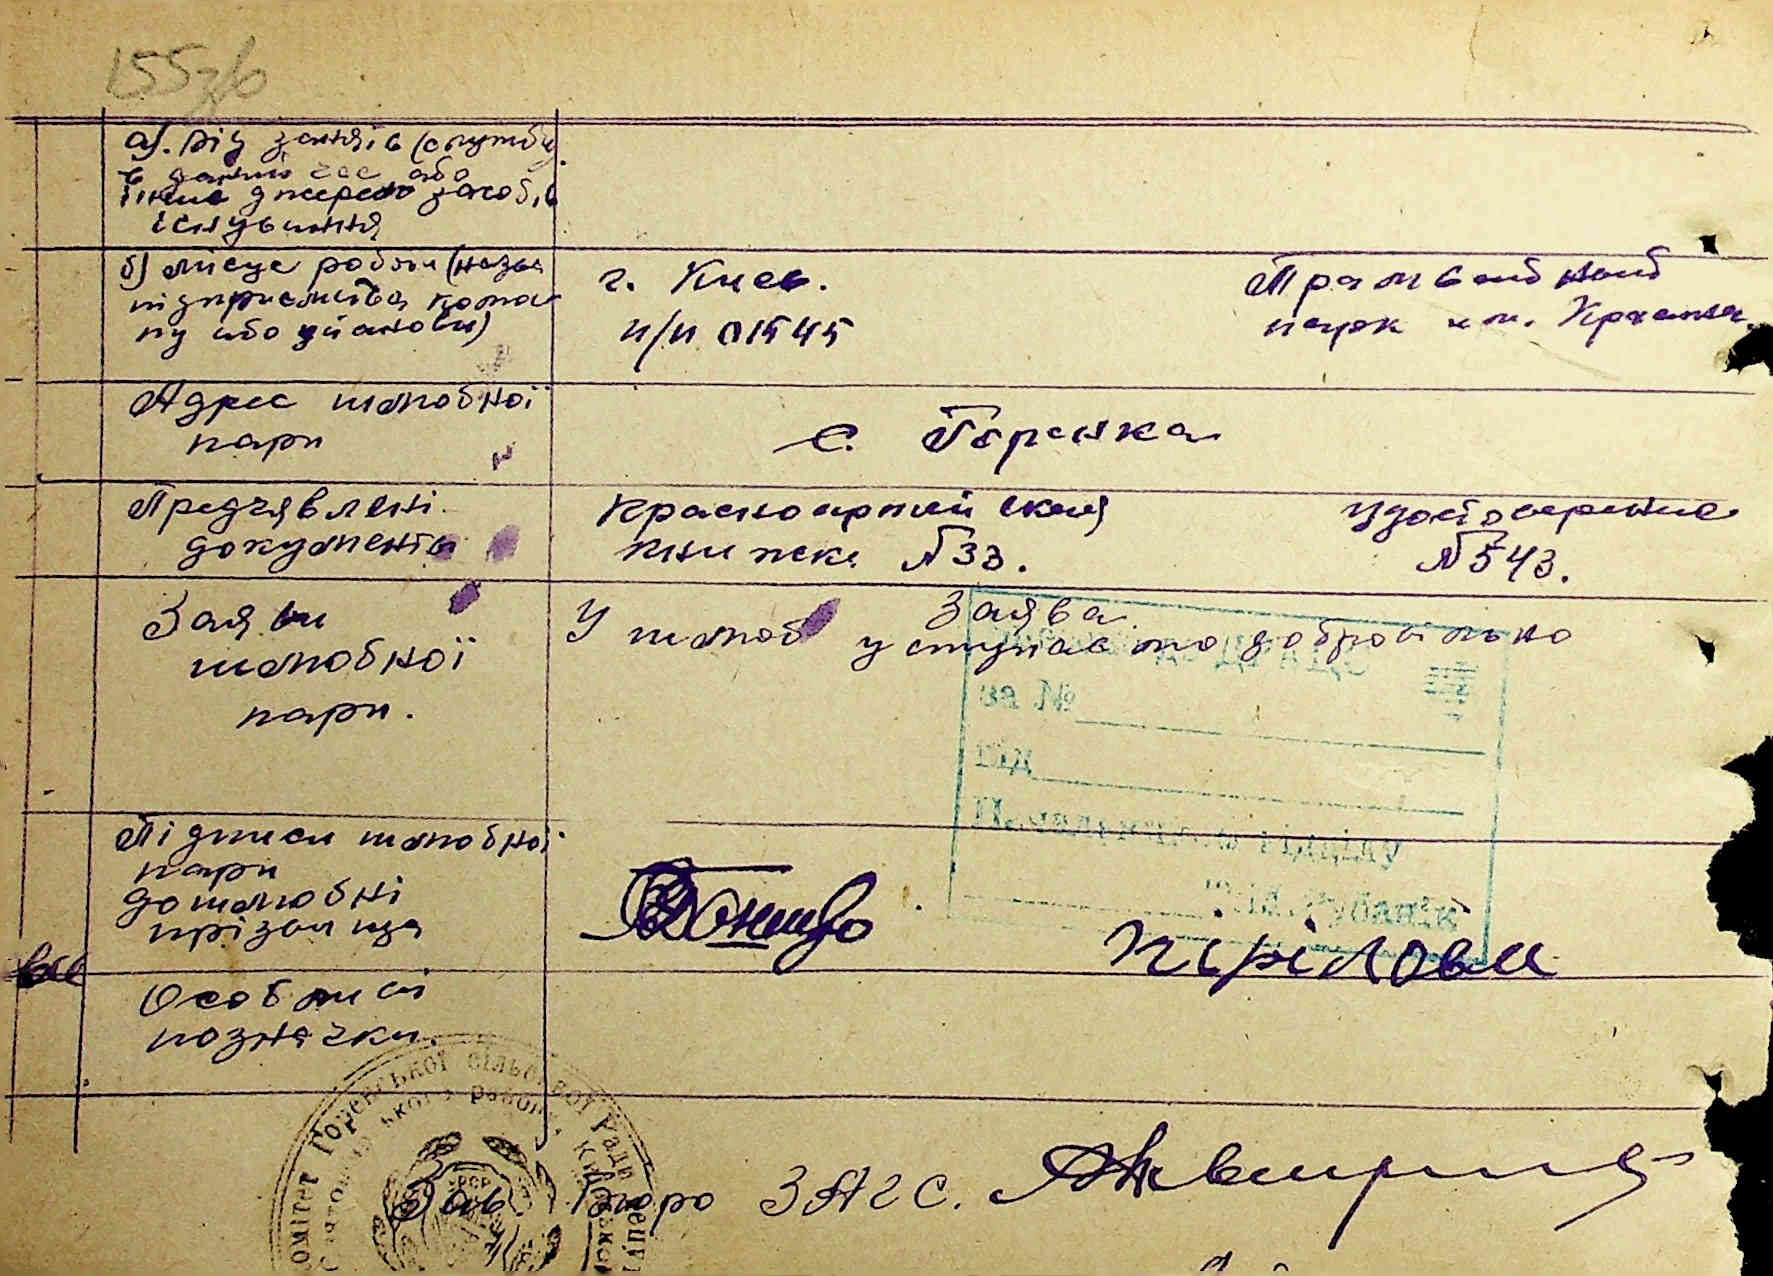 155зв
а). рід занятів (службу
в даний час або
інше джерело засобів
існування
б) місце роботи (назва
підприємства колго
пу або установи)
г. Киев.
п/п 01545
Трамвайный
парк им. Красина.
Адрес шлюбної
пари
с. Горенка
Предъявлені
документи
Красноармейская
книжка №33.
Удостоверение
№543.
Заяви
шлюбної
пари.
Заява.
У шлюб уступаємо добровільно
за №
від
Підписи шлюбної
пари
дошлюбні
прізвища
Кірілова
Особисті
позначки.
Зав. Бюро ЗАГС.
Горенської сільської Ради